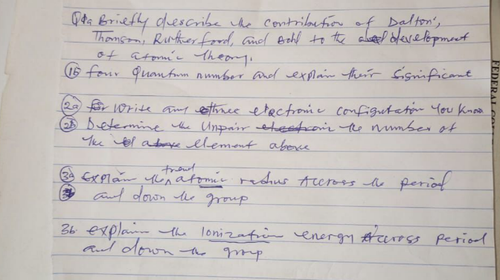 Q1a Briefly describe the contribution of Dalton's,
Thomson, Rutherford, and Bohl to the development
of atomic theory.
1b four Quantum number and explain their significant
2a Write any three electronic configutation you know
2b Determine the Unpair the number of
the element above
3a explain the trend atomic radius Accross the period
and down the group
3b explain the Ionization energy Accross period
and down the group
FEDERAL CO